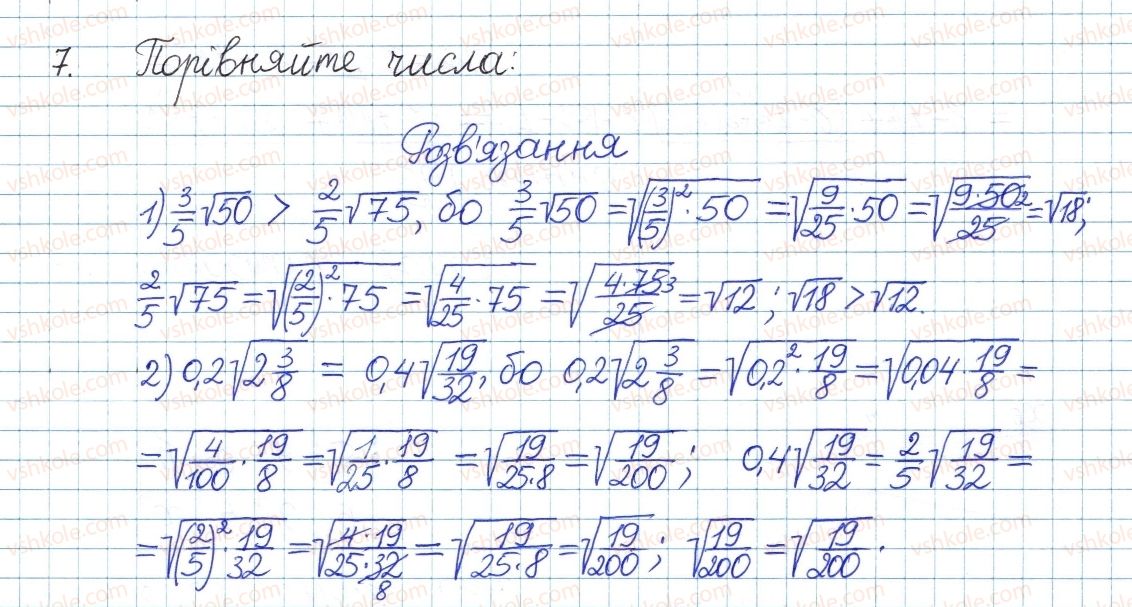 7. Порівняйте числа:
Розв'язання
1) 3/5 √50 > 2/5 √75, бо 3/5 √50 = √((3/5)² · 50) = √(9/25 · 50) = √(9·50 2/25) = √18;
2/5 √75 = √((2/5)² · 75) = √(4/25 · 75) = √(4·75 3/25) = √12; √18 > √12.
2) 0,2√(2 3/8) = 0,4√(19/32), бо 0,2√(2 3/8) = √(0,2² · 19/8) = √(0,04 · 19/8) =
= √(4/100 · 19/8) = √(1/25 · 19/8) = √(19/(25·8)) = √(19/200); 0,4√(19/32) = 2/5 √(19/32) =
= √((2/5)² · 19/32) = √(4·19/(25·32 8)) = √(19/(25·8)) = √(19/200); √(19/200) = √(19/200).